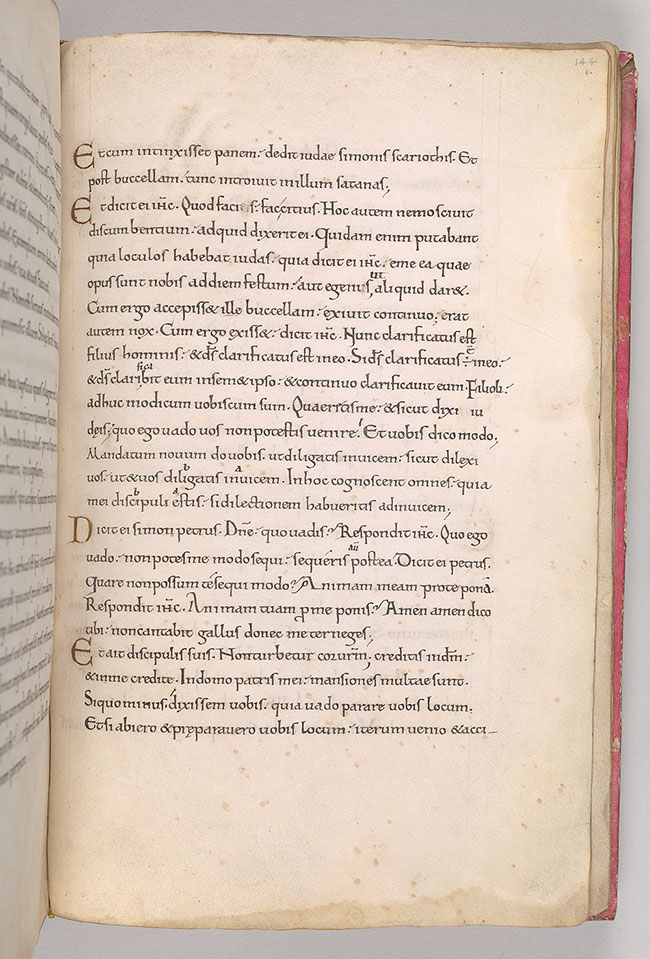 144
Et cum intinxisset panem. dedit iudae simonis scariothis. Et
post buccellam. tunc introiuit in illum satanas;
Et dicit ei ihc. Quod facis. fac citius. Hoc autem nemo sciuit
discumbentium. ad quid dixerit ei. Quidam enim putabant
quia loculos habebat iudas. quia dicit ei ihc. eme ea quae
opus sunt nobis ad diem festum. aut egenis ut aliquid dar&.
Cum ergo accepiss& ille buccellam. exiuit continuo; erat
autem nox. Cum ergo exiss&. dicit ihc. Nunc clarificatus est
filius hominis. & ds clarificatus est in eo. Si ds clarificatus ÷ in eo.
& ds clarificabit eum in sem&ipso. & continuo clarificauit eum. Filioli.
adhuc modicum uobiscum sum. Quaeritis me. & sicut dixi iu
deis; quo ego uado uos non potestis uenire. Et uobis dico modo;
Mandatum nouum do uobis. ut diligatis inuicem. sicut dilexi
uos. ut & uos diligatis inuicem. In hoc cognoscent omnes. quia
mei discipuli estis. si dilectionem habueritis ad inuicem;
Dicit ei simon petrus. Dne. quo uadis? Respondit ihc. Quo ego
uado. non potes me modo sequi. sequeris postea. Dicit ei petrus.
Quare non possum te sequi modo? Animam meam pro te ponā.
Respondit ihc. Animam tuam p me ponis? Amen amen dico
tibi. non cantabit gallus donec me ter neges;
Et ait discipulis suis. Non turbetur cor urm. creditis in dm.
& in me credite. In domo patris mei. mansiones multae sunt.
Si quo minus. dixissem uobis. quia uado parare uobis locum.
Et si abiero & pręparauero uobis locum. iterum uenio & acci-